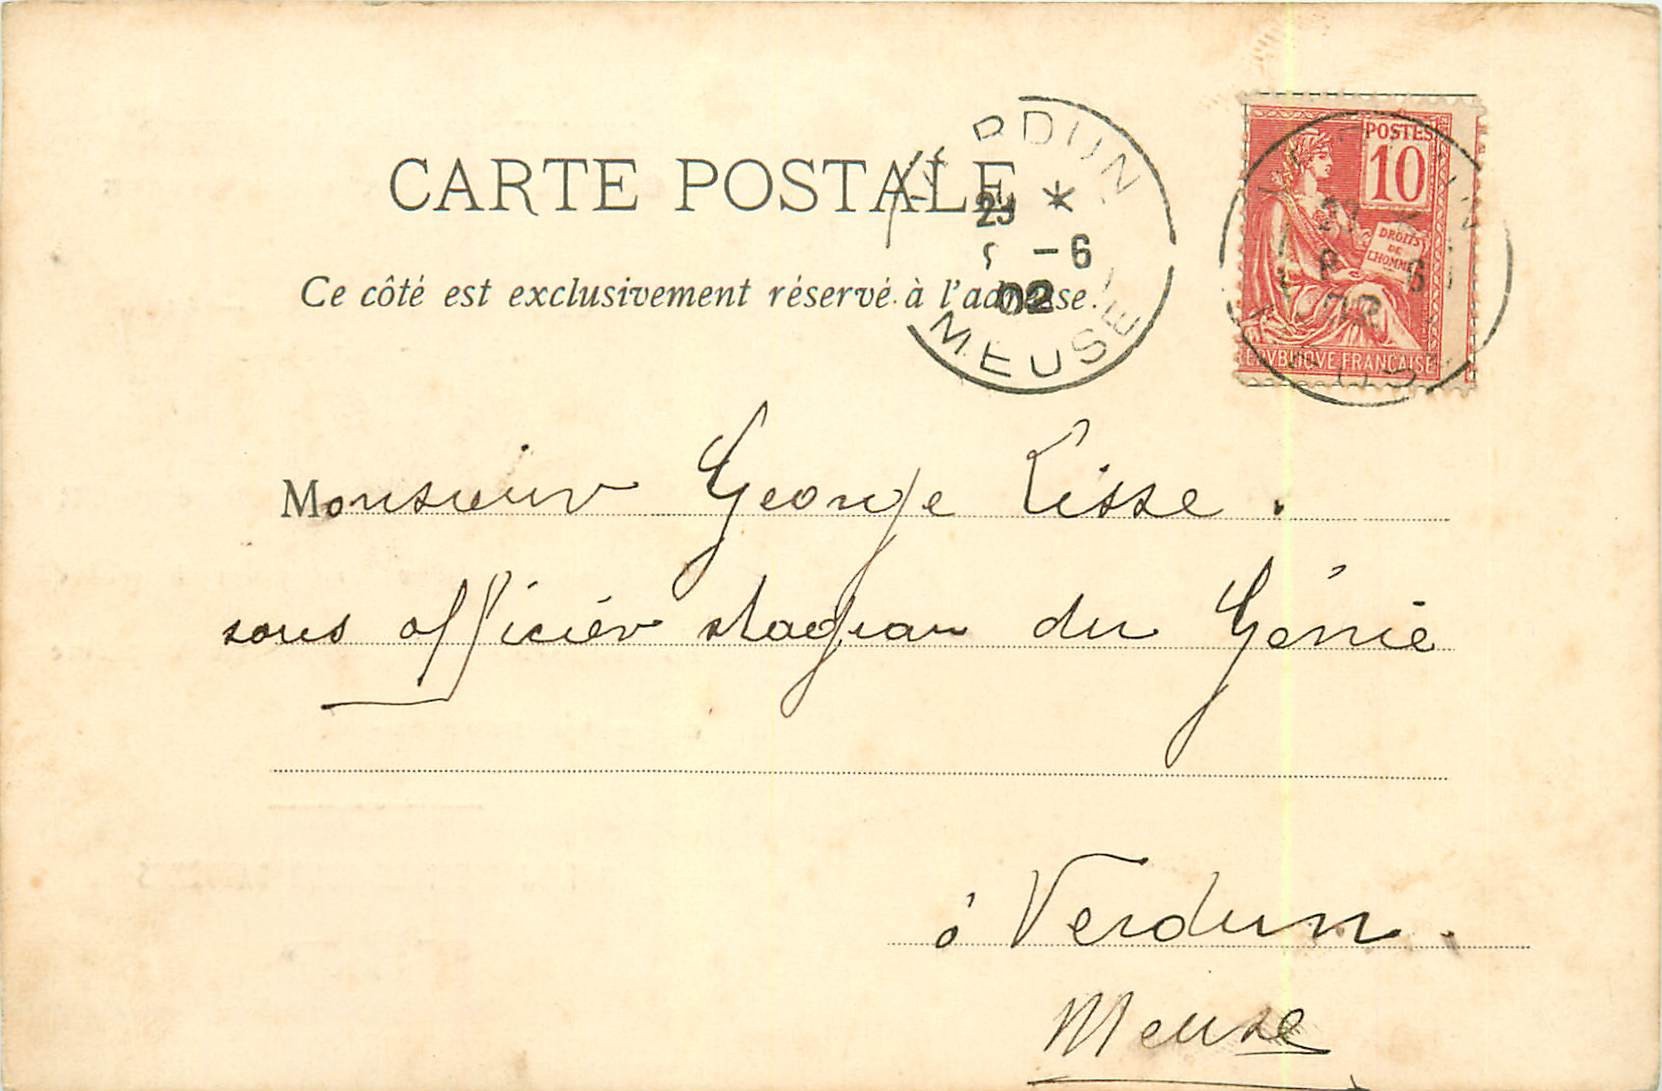 CARTE POSTALE
Ce côté est exclusivement réservé à l'adresse.
VERDUN
29 *
-6
02
MEUSE
POSTES
10
DROITS
DE
L'HOMME
REPVBLIQVE FRANÇAISE
27
6
02
Monsieur George Lisse.
sous officier stagiair du Génie
à Verdun.
Meuse